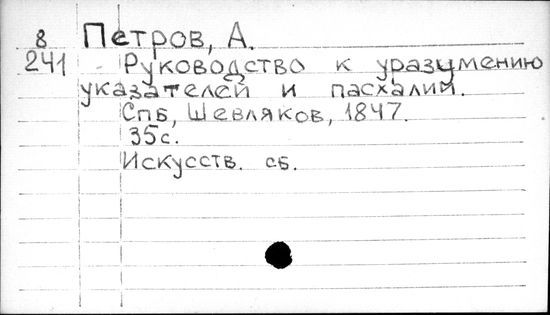 8 Петров, А.
241 Руководство к уразумению
указателей и пасхалии.
Спб, Шевляков, 1847.
35с.
Искусств. сб.